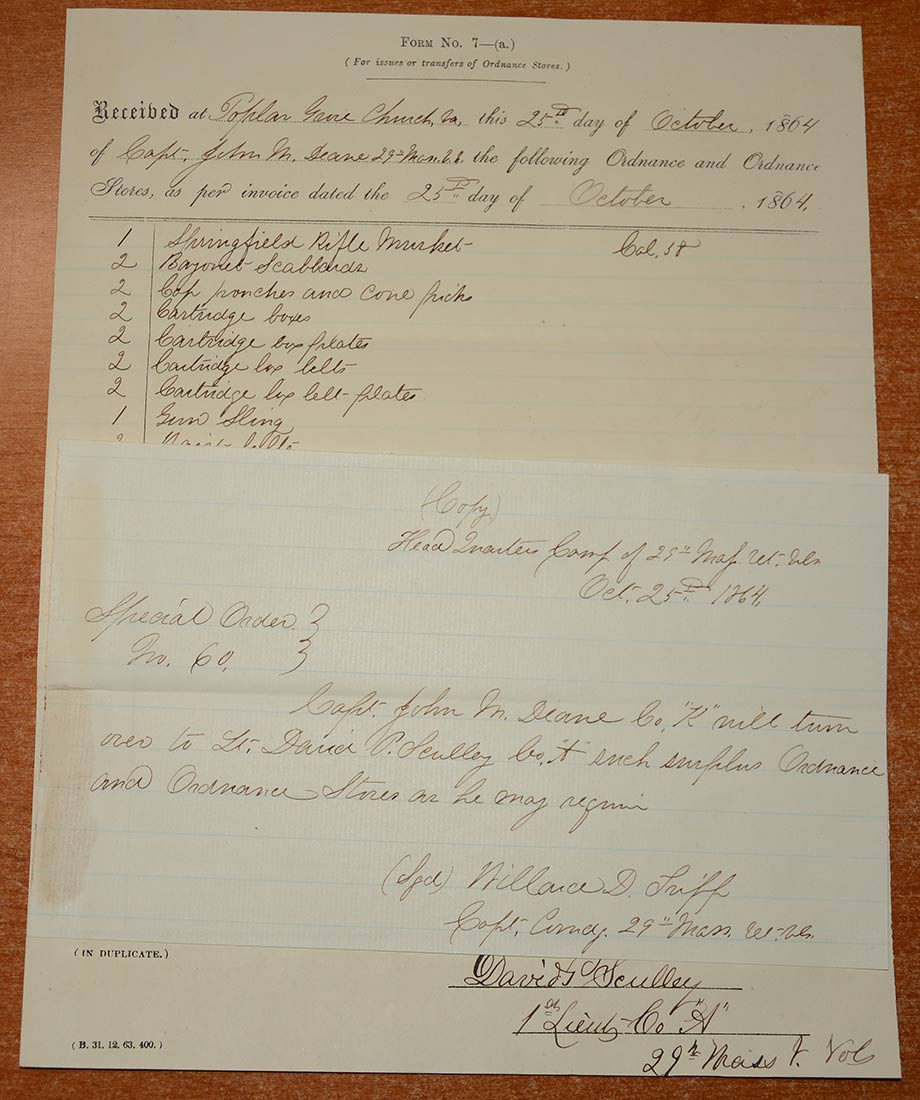 FORM No. 7—(a.)
(For issues or transfers of Ordnance Stores.)
Received at Poplar Grove Church, Va, this 25th day of October, 1864
of Capt. John M. Deane 29th Mass. V.V. the following Ordnance and Ordnance
Stores, as per invoice dated the 25th day of October, 1864,
1 Springfield Rifle Musket Cal, 58
2 Bayonet Scabbards
2 Cap pouches and Cone picks
2 Cartridge boxes
2 Cartridge box plates
2 Cartridge box belts
2 Cartridge box belt plates
1 Gun Sling
(Copy)
Head Quarters Camp of 29th Mass. Vet. Vols
Oct. 25th 1864,
Special Order }
No. 60, }
Capt. John M. Deane Co. "K" will turn
over to Lt. David P. Sculley Co. "A" such surplus Ordnance
and Ordnance Stores as he may require
(Sgd) Willard D. Tripp
Capt. Comdg. 29th Mass. Vet. Vols.
(IN DUPLICATE.)
David Sculley
1st Lieut Co "A"
29th Mass V. Vols
(B. 31. 12. 63. 400.)